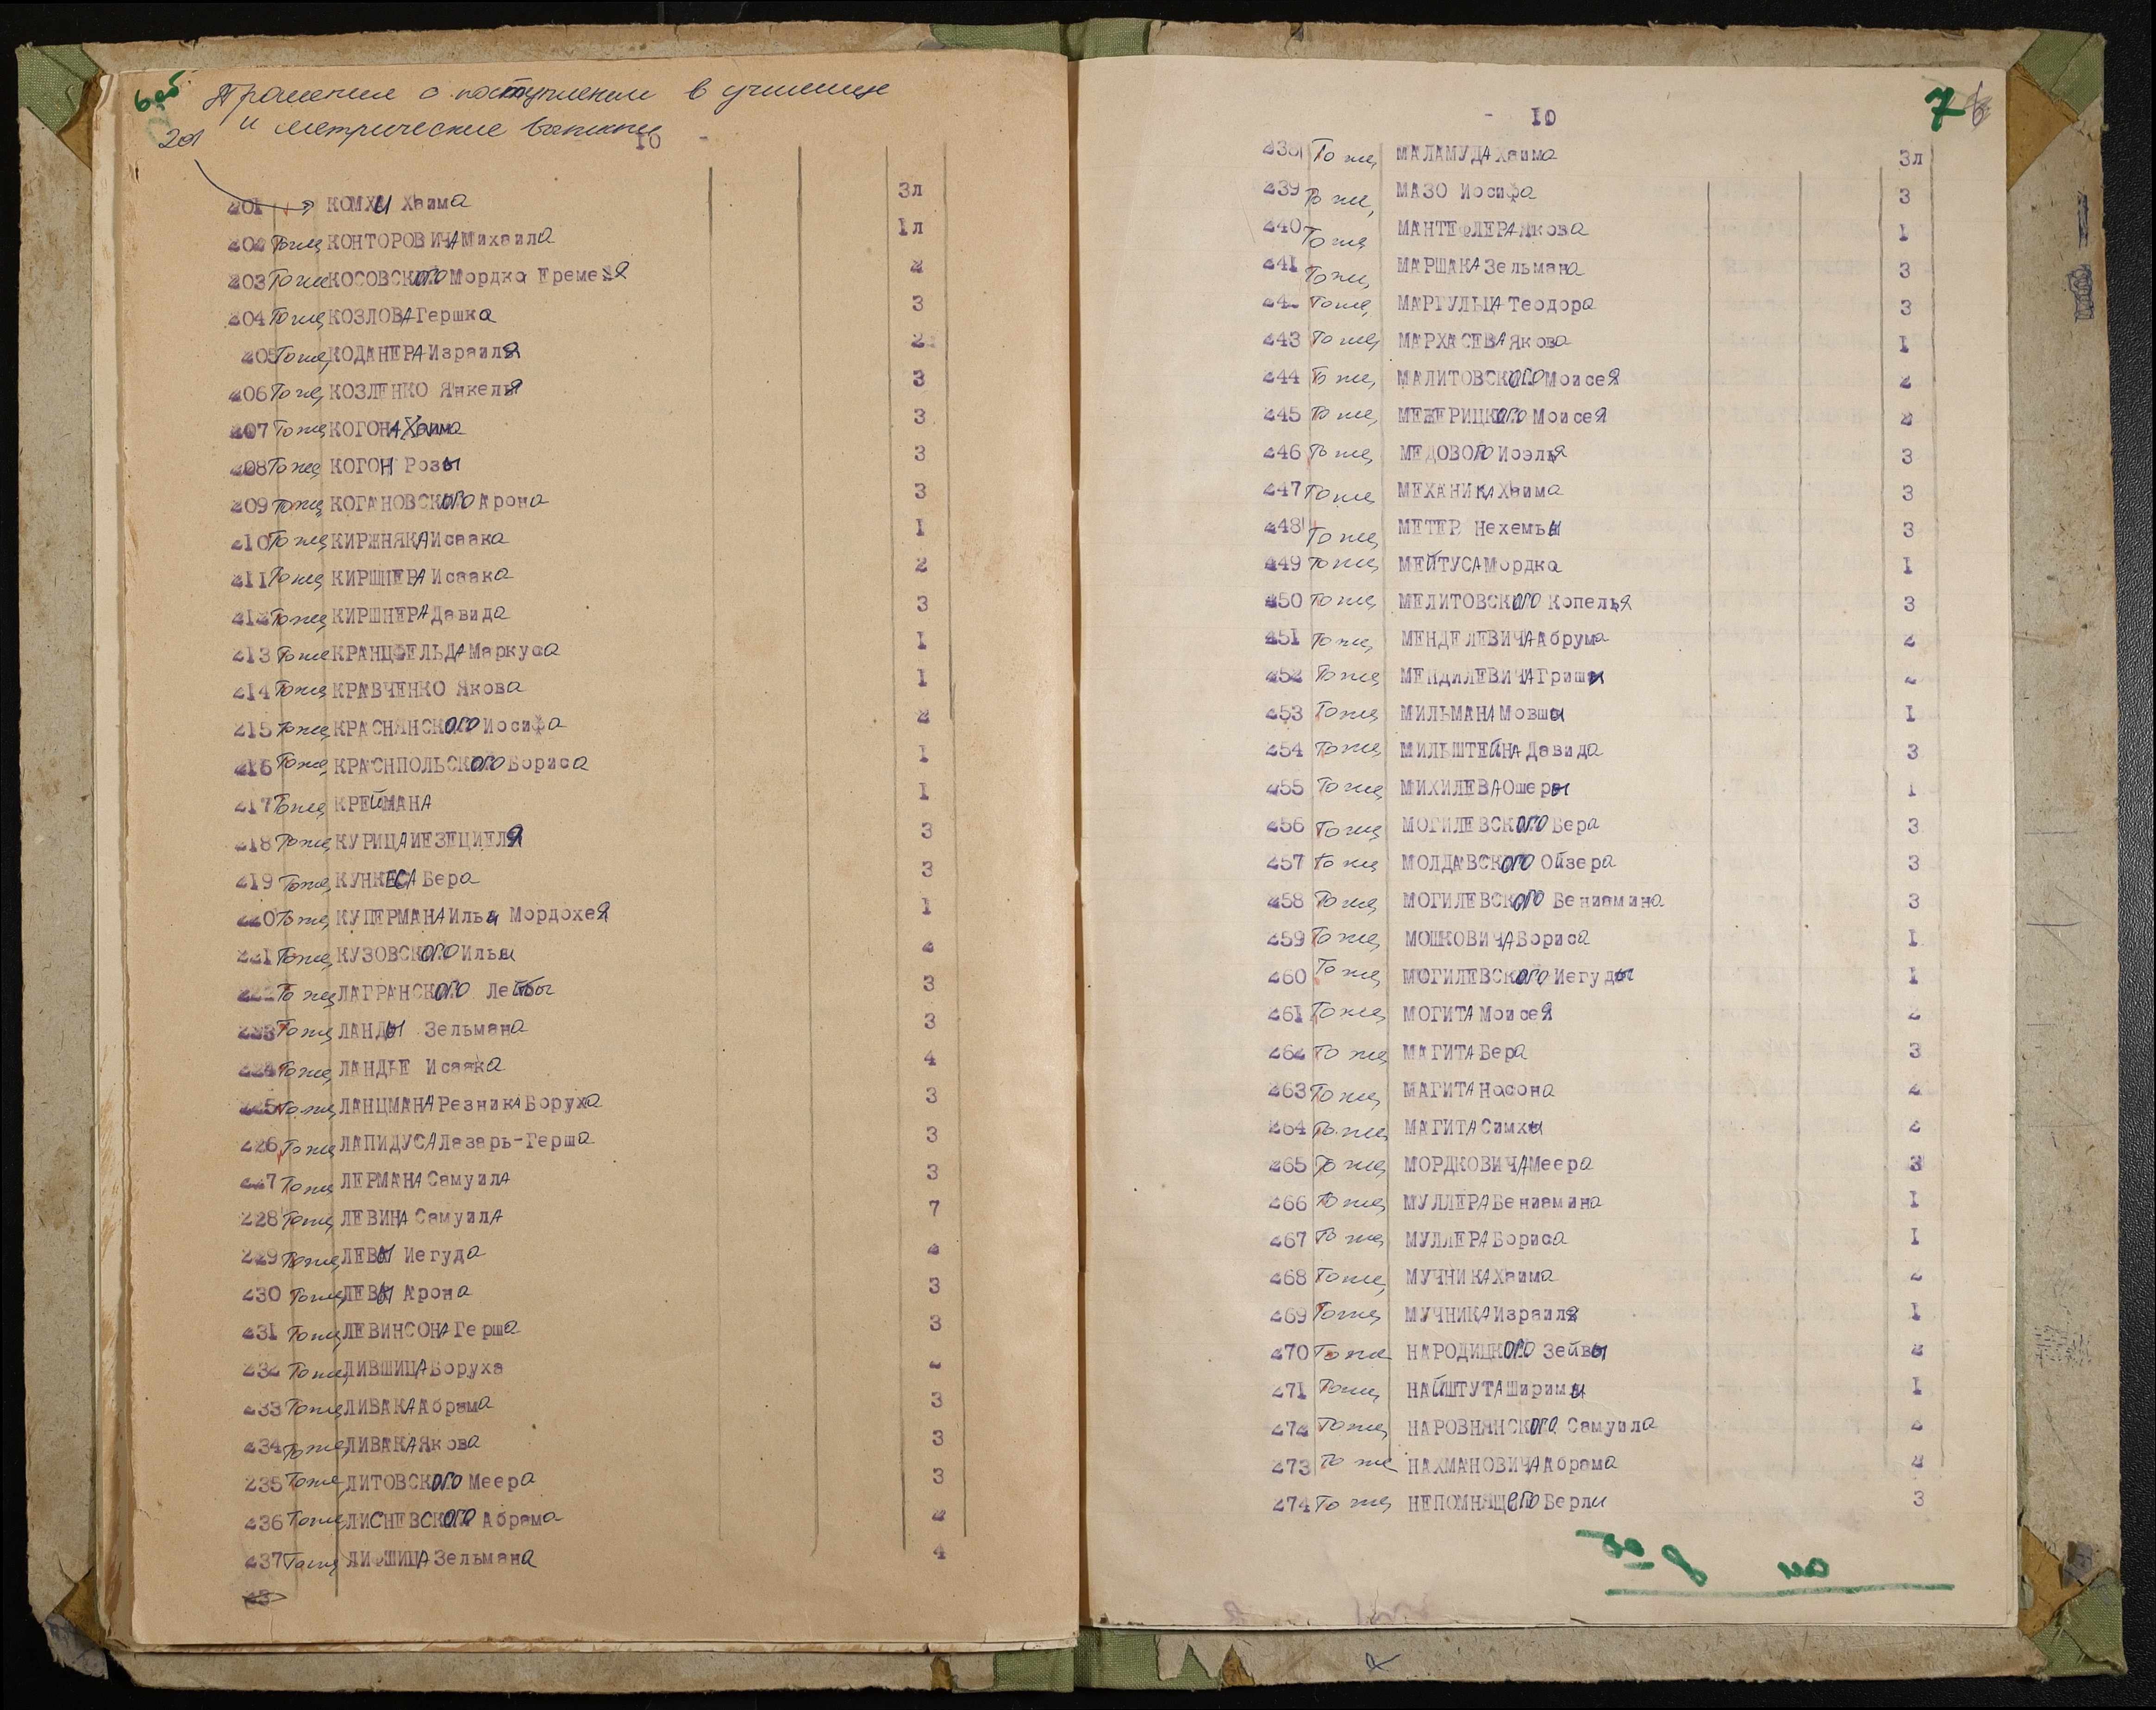 6 об
Прошения о поступлении в училище
и метрические выписки
201
10 -
201 КОМХИ Хаима 3л
202 То же КОНТОРОВИЧА Михаила 1л
203 То же КОСОВСКОГО Мордко Еремея 2
204 То же КОЗЛОВА Гершка 3
205 То же КОДАНЕРА Израиля 2
206 То же КОЗЛЕНКО Янкеля 3
207 То же КОГОНА Хаима 3
208 То же КОГОН Розы 3
209 То же КОГАНОВСКОГО Арона 3
210 То же КИРЖНЯКА Исаака 1
211 То же КИРШНЕРА Исаака 2
212 То же КИРШНЕРА Давида 3
213 То же КРАНЦФЕЛЬДА Маркуса 1
214 То же КРАВЧЕНКО Якова 1
215 То же КРАСНЯНСКОГО Иосифа 2
216 То же КРАСНПОЛЬСКОГО Бориса 1
217 То же КРЕЙМАНА 1
218 То же КУРИЦА ИЕЗЕЦИЕЛЯ 3
219 То же КУНКЕСА Бера 3
220 То же КУПЕРМАНА Ильи Мордохея 1
221 То же КУЗОВСКОГО Ильи 2
222 То же ЛАГРАНСКОГО Лейбы 3
223 То же ЛАНДЫ Зельмана 3
224 То же ЛАНДЬЕ Исаака 4
225 То же ЛАНЦМАНА Резника Боруха 3
226 То же ЛАПИДУСА Лазарь-Герша 3
227 То же ЛЕРМАНА Самуила 3
228 То же ЛЕВИНА Самуила 7
229 То же ЛЕВЫ Иегуда 2
230 То же ЛЕВЫ Арона 3
231 То же ЛЕВИНСОНА Герша 3
232 То же ЛИВШИЦА Боруха 2
233 То же ЛИВАКА Абрама 3
234 То же ЛИВАКА Якова 3
235 То же ЛИТОВСКОГО Меера 3
236 То же ЛИСНЕВСКОГО Абрама 2
237 То же ЛИФШИЦА Зельмана 4
23
7
- 10
238 То же МАЛАМУДА Хаима 3л
239 То же, МАЗО Иосифа 3
240 То же МАНТЕФЛЕРА Якова 1
241 То же, МАРШАКА Зельмана 3
242 То же, МАРГУЛЬЦА Теодора 3
243 То же, МАРХАСЕВА Якова 1
244 То же, МАЛИТОВСКОГО Моисея 2
245 То же, МЕЖЕРИЦКОГО Моисея 2
246 То же, МЕДОВОГО Иоэля 3
247 То же МЕХАНИКА Хаима 3
248 То же МЕТЕР Нехемьи 3
249 То же МЕЙТУСА Мордка 1
250 То же МЕЛИТОВСКОГО Копеля 3
251 То же МЕНДЕЛЕВИЧА Абрума 2
252 То же МЕНДИЛЕВИЧА Гриши 2
253 То же МИЛЬМАНА Мовши 1
254 То же МИЛЬШТЕЙНА Давида 3
255 То же МИХИЛЕВА Ошеры 1
256 То же МОГИЛЕВСКОГО Бера 3
257 То же МОЛДАВСКОГО Ойзера 3
258 То же МОГИЛЕВСКОГО Бениамина 3
259 То же МОШКОВИЧА Бориса 1
260 То же МОГИЛЕВСКОГО Иегуды 1
261 То же МОГИТА Моисея 2
262 То же МАГИТА Бера 3
263 То же МАГИТА Насона 2
264 То же МАГИТА Симхи 2
265 То же МОРДКОВИЧА Меера 3
266 То же МУЛЛЕРА Бениамина 1
267 То же МУЛЛЕРА Бориса 1
268 То же, МУЧНИКА Хаима 2
269 То же МУЧНИКА Израиля 1
270 То же НАРОДИЦКОГО Зейвы 2
271 То же НАЙШТУТА Ширимы 1
272 То же НАРОВНЯНСКОГО Самуила 2
273 То же НАХМАНОВИЧА Абрама 2
274 То же НЕПОМНЯЩЕГО Берли 3
см 8 об